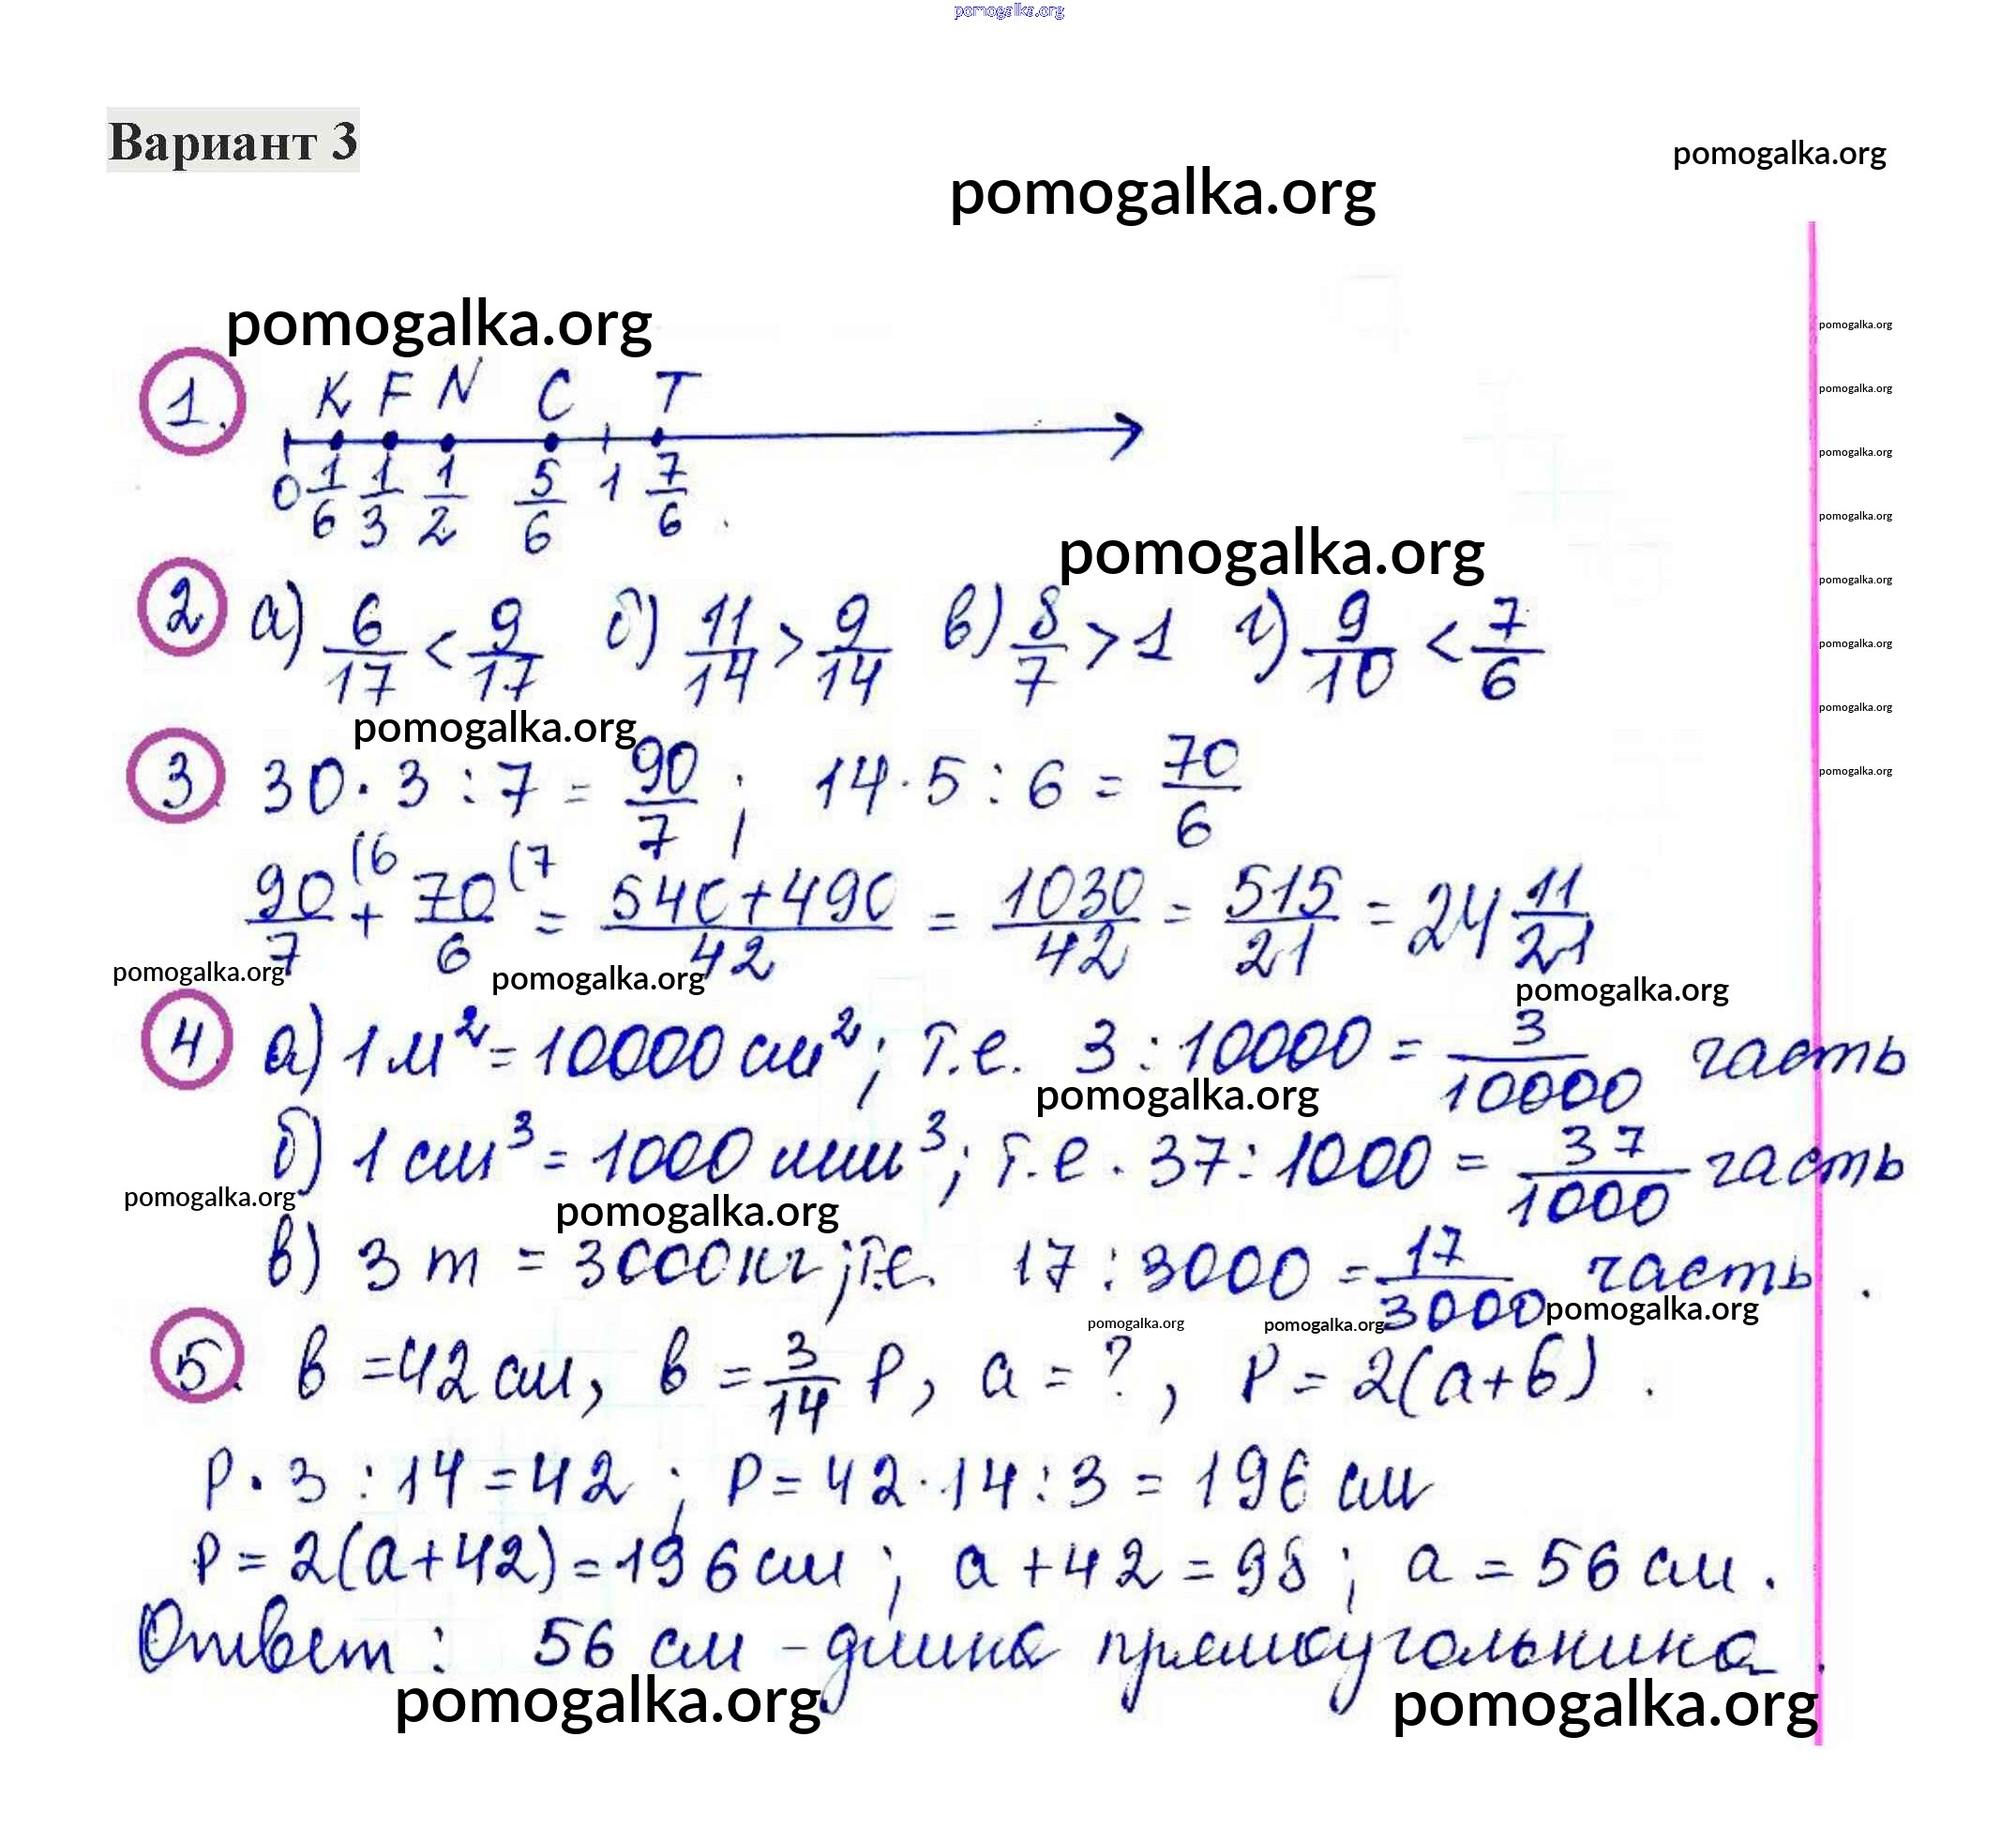 pomogalka.org
Вариант 3
pomogalka.org
pomogalka.org
pomogalka.org
pomogalka.org
1. K F N C T
0 1/6 1/3 1/2 5/6 1 7/6
pomogalka.org
pomogalka.org
pomogalka.org
pomogalka.org
2 а) 6/17 < 9/17 б) 11/14 > 9/14 в) 8/7 > 1 г) 9/10 < 7/6
pomogalka.org
pomogalka.org
pomogalka.org
pomogalka.org
pomogalka.org
3. 30 · 3 : 7 = 90/7 ; 14 · 5 : 6 = 70/6
pomogalka.org
90/7 (6 + 70/6 (7 = 540+490/42 = 1030/42 = 515/21 = 24 11/21
pomogalka.org
pomogalka.org
pomogalka.org
4. а) 1 м² = 10000 см² ; т.е. 3 : 10000 = 3/10000 часть
pomogalka.org
б) 1 см³ = 1000 мм³ ; т.е. 37 : 1000 = 37/1000 часть
pomogalka.org
pomogalka.org
в) 3 т = 3000 кг ; т.е. 17 : 3000 = 17/3000 часть .
pomogalka.org
pomogalka.org
pomogalka.org
5. в = 42 см, в = 3/14 Р, а = ? , Р = 2(а+в) .
Р · 3 : 14 = 42 ; Р = 42 · 14 : 3 = 196 см
Р = 2(а+42) = 196 см ; а + 42 = 98 ; а = 56 см .
Ответ : 56 см – длина прямоугольника .
pomogalka.org
pomogalka.org